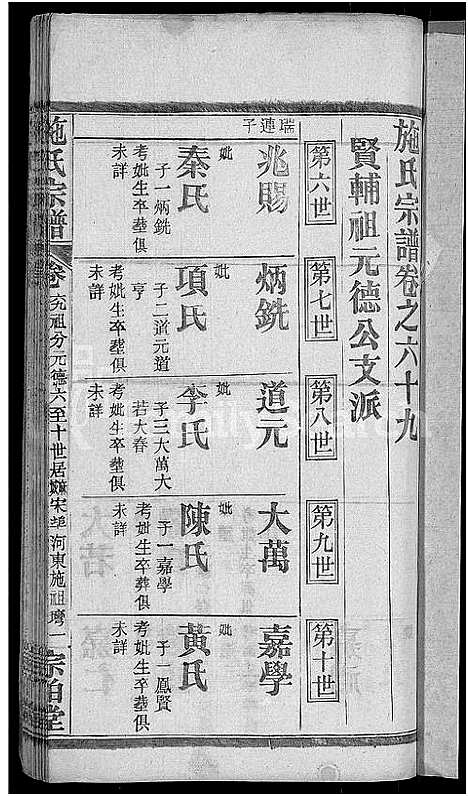 施氏宗譜卷之六十九
賢輔祖元德公支派
第六世
第七世
第八世
第九世
第十世
瑞連子
兆賜
妣
秦氏
子一炳銑
考妣生卒塟俱
未詳
炳銑
妣
項氏
子二道元道
亨
考妣生卒塟俱
未詳
道元
妣
李氏
子三大萬大
若大春
考妣生卒塟俱
未詳
大萬
妣
陳氏
子一嘉學
考妣生卒葬俱
未詳
嘉學
妣
黃氏
子一鳳賢
考妣生卒塟俱
未詳
施氏宗譜
卷
祖分元德六至十世居
河東施祖灣一
宗伯堂